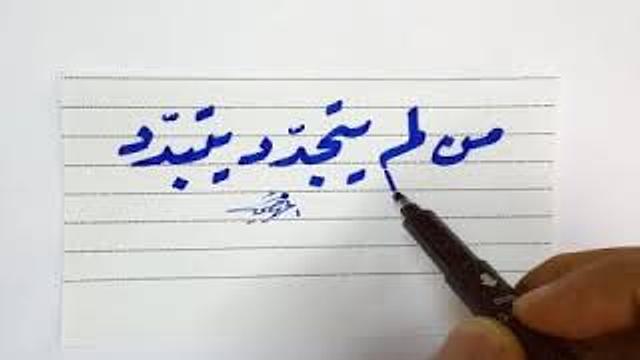 من لم يتجدّد يتبدّد